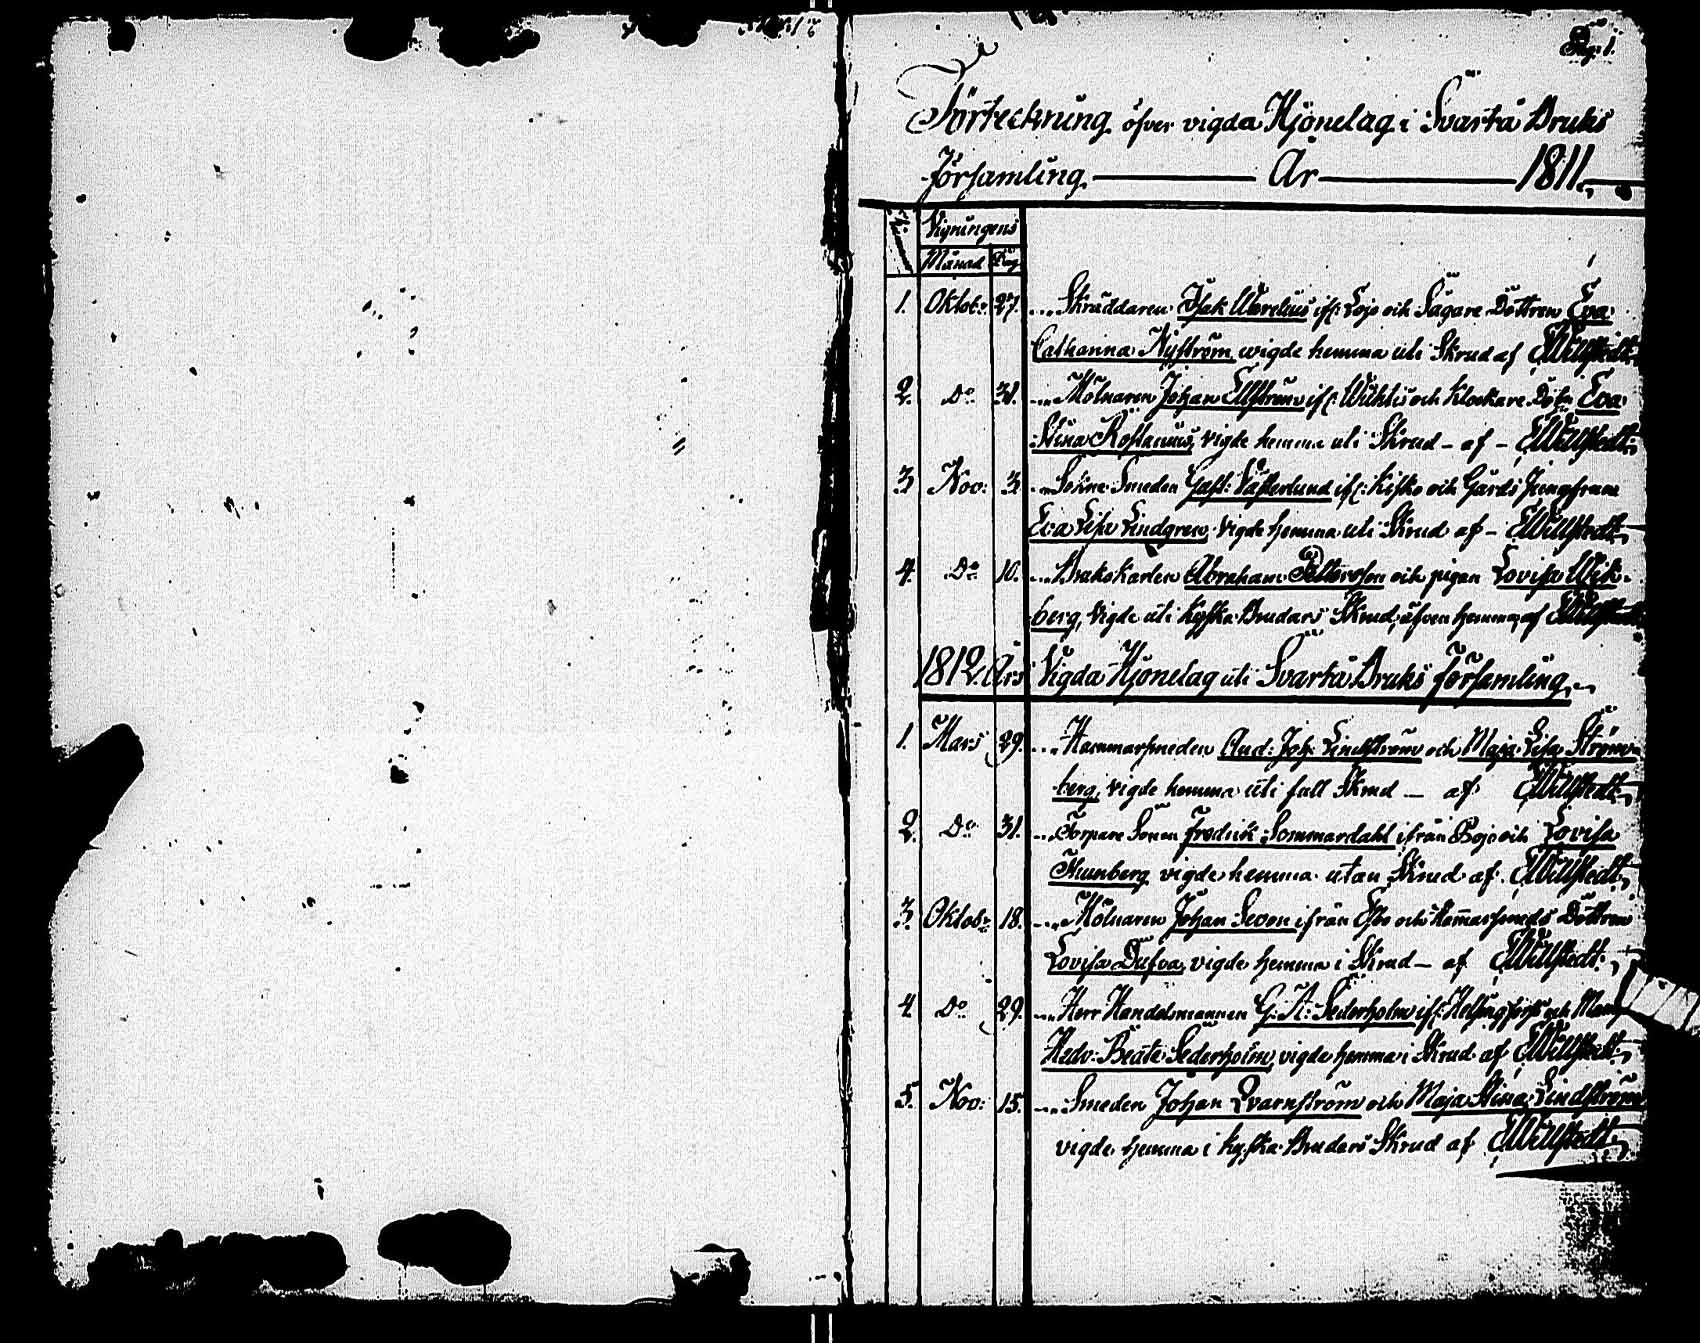 Pag: 1.
Förteckning öfver vigda Hjonelag i Svartå Bruks
Församling. År 1811.
N:
Vigningens
Månad Dag
1. Oktob: 27. Skräddaren Isak Warelius if: Lojo och Sågare Dottren Eva
Catharina Nyström, wigde hemma uti Skrud af EWillstedt.
2. Do 31. Mölnaren Johan Ellström if: Wichtis och Klockare Dott: Eva
Stina Roslanius, vigde hemma uti Skrud - af - EWillstedt.
3. Nov: 3. Sokne Smeden Gust: Västerlund if: Kisko och Gårds Jungfrun
Eva Lisa Lindgren, vigde hemma uti Skrud af - EWillstedt.
4. Do 10. Brukskarlen Abraham Pettersson och pigan Lovisa Wik-
berg, vigde uti kyska Brudars Skrud, äfven hemma, af EWillstedt.
1812. Års Vigda Hjonelag uti Svartå Bruks församling.
1. Mars 29. Hammarsmeden And: Joh: Lindström och Maja Lisa Ström-
berg, vigde hemma uti full Skrud - af EWillstedt.
2. Do 31. Torpare Sonen Fredrik Sommardahl ifrån Bojo och Lovisa
vigde hemma utan Skrud af EWillstedt.
3. Oktob: 18. Mölnaren Johan Sevon ifrån Esbo och Hammarsmeds Dottren
Lovisa Dufva, vigde hemma i Skrud - af EWillstedt.
4. Do 29. Herr Handelsmannen G: A: Sederholm if: Helsingfors och
Hedv: Beate Sederholm, vigde hemma i Skrud af EWillstedt.
5. Nov: 15. Smeden Johan Qvarnström och Maja Stina Lindström
vigde hemma i kyska Brudars Skrud af EWillstedt.